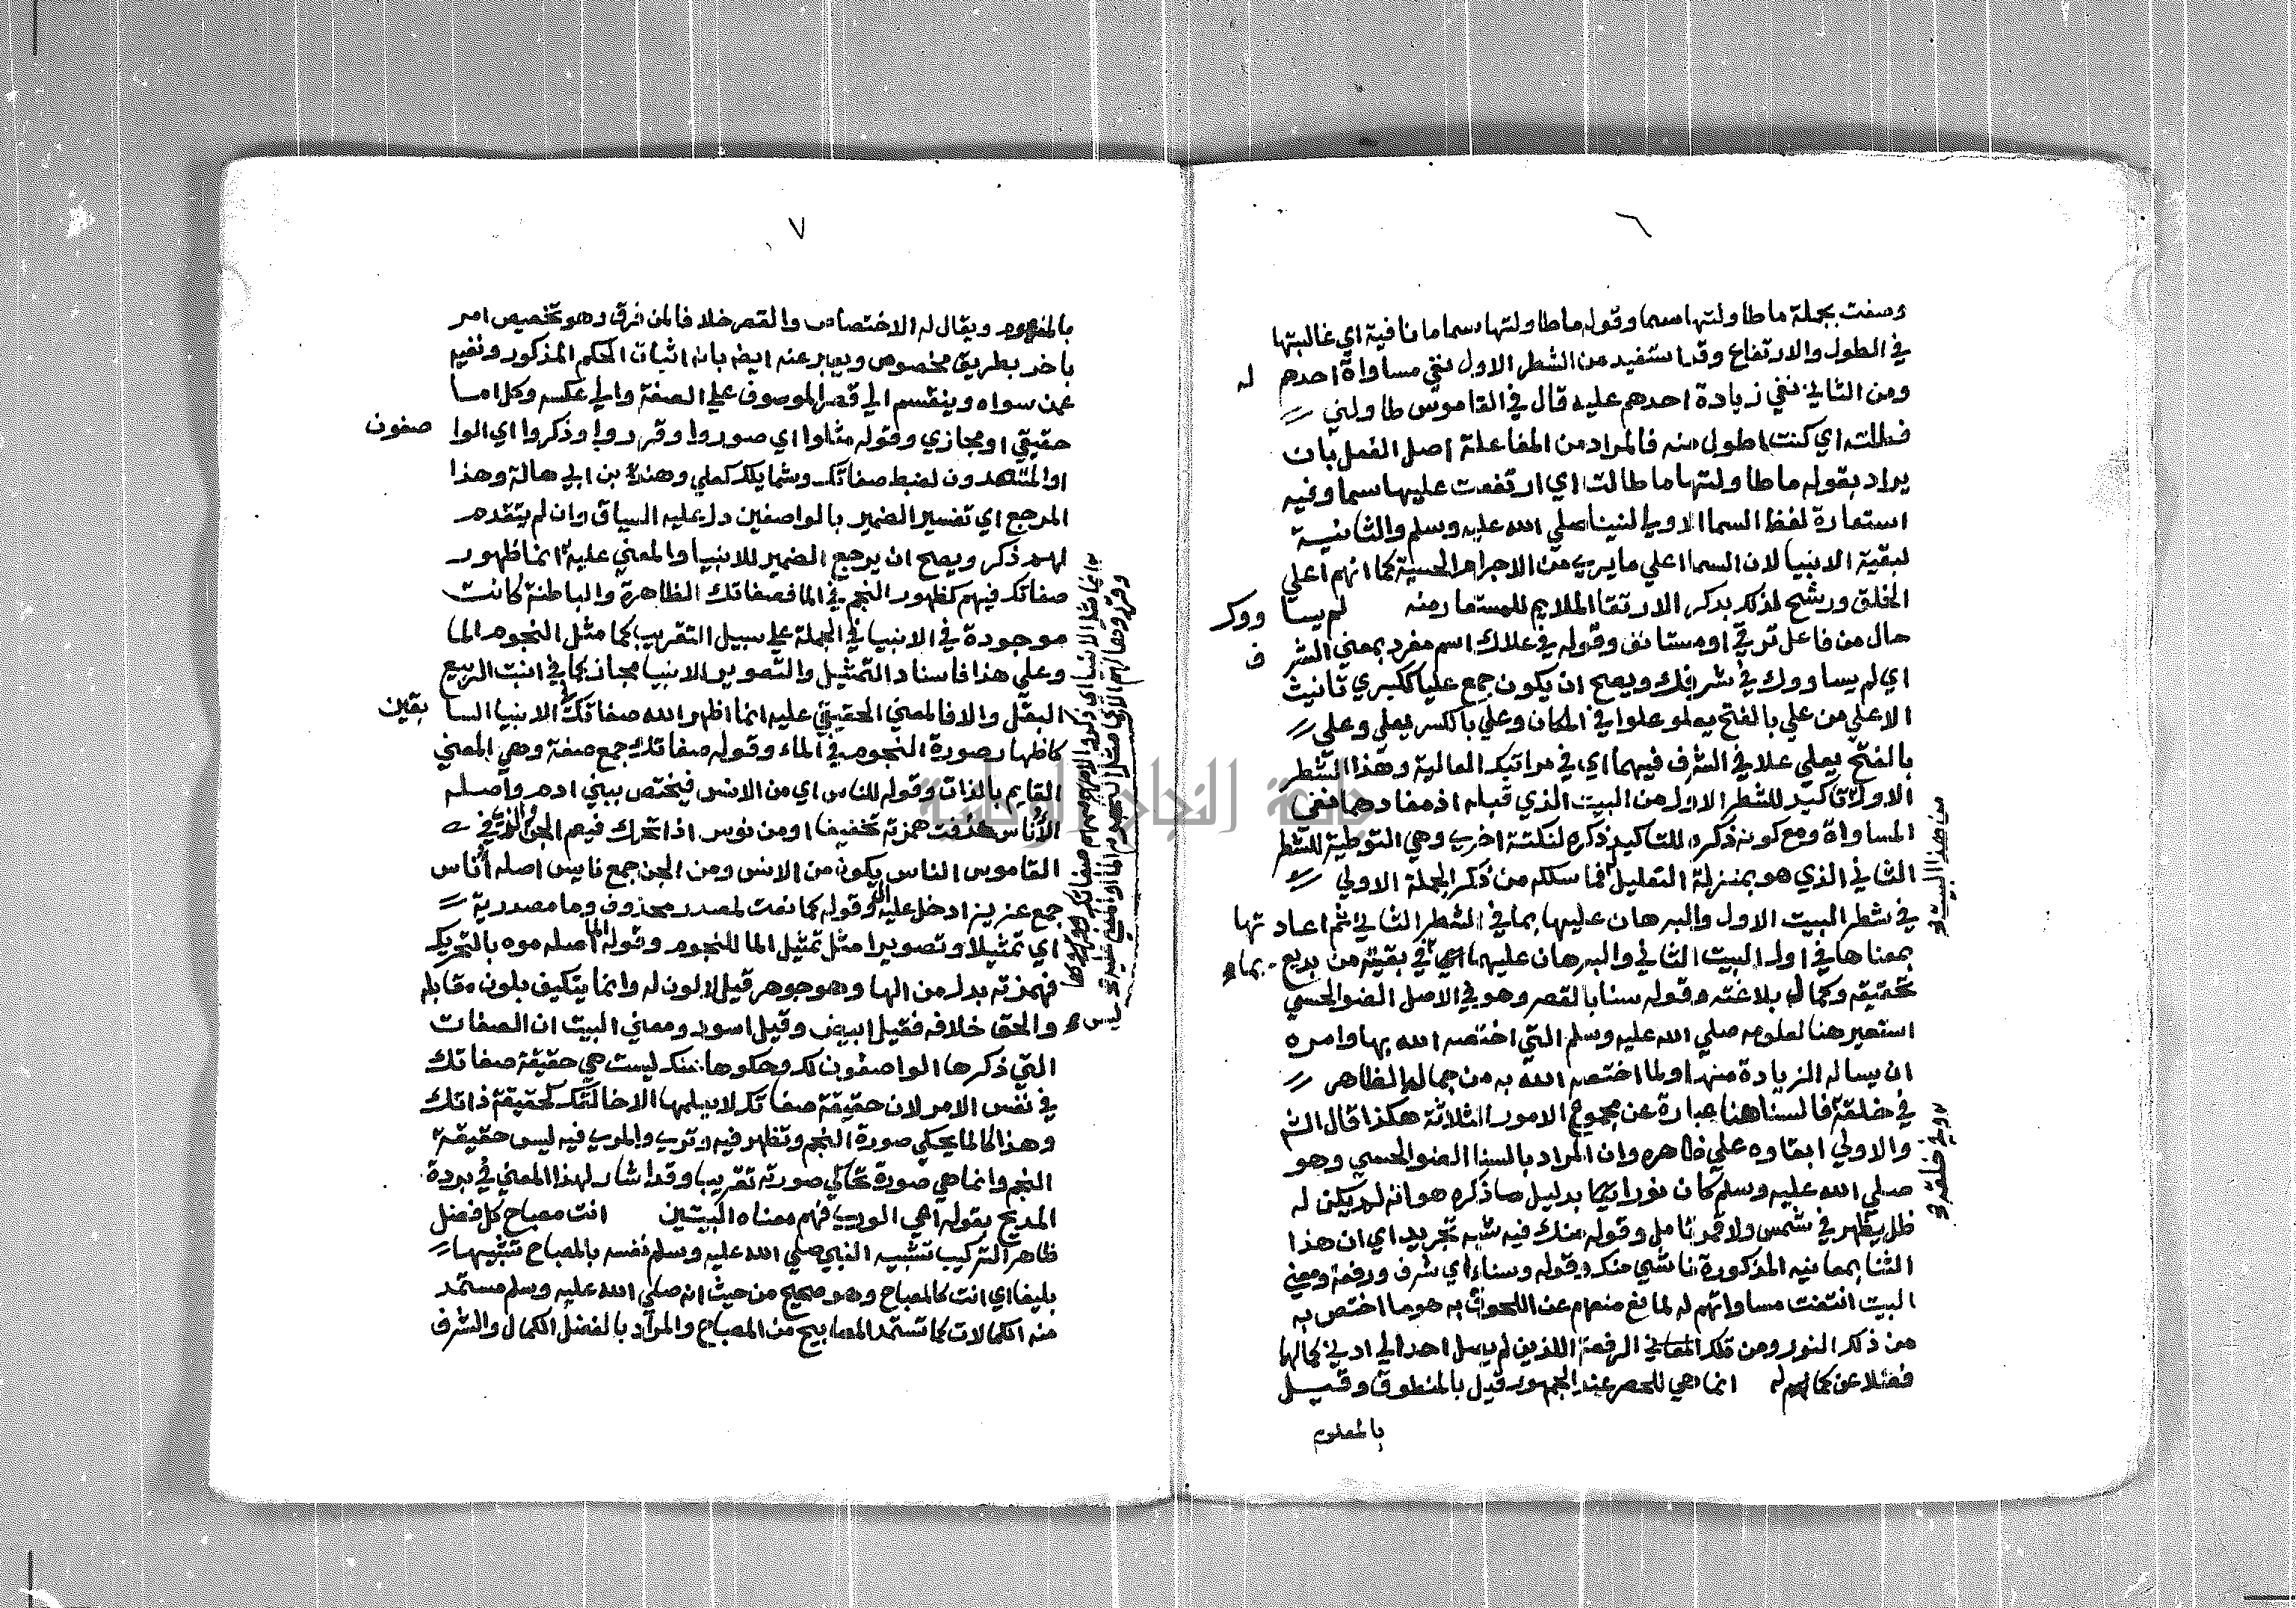 ٦
وصفت بجملة ما طاولتها سما وقوله ما طاولتها سما ما نافية اي غالبتها
في الطول والارتفاع وقد استفيد من الشطر الاول نفي مساواة احدهم له
ومن الثاني نفي زيادة احدهم عليه قال في القاموس طاولني
فطلته اي كنت اطول منه فالمراد من المفاعلة اصل الفعل بان
يراد بقوله ما طاولتها ما طالت اي ارتفعت عليها سما وفيه
استعارة لفظ السما الاولي لنبينا صلي الله عليه وسلم والثانية
لبقية الانبيا لان السما اعلي ما يري من الاجرام الحسية كما انهم اعلي
الخلق ورشح لذلك بذكر الارتقا الملايم للمستعار منه لم يسا ووك
حال من فاعل ترقي او مستانف وقوله في علاك اسم مفرد بمعني الشرف
اي لم يساووك في شرفك ويصح ان يكون جمع عليا ككبري تانيث
الاعلي من علي بالفتح يعلو علوا في المكان وعلي بالكسر يعلي وعلي
بالفتح يعلي علا في الشرف فيهما اي في مراتبك العالية وهذا الشطر
الاول تاكيد للشطر الاول من البيت الذي قبله اذ مفادهما نفي
المساواة ومع كونه ذكره للتاكيد ذكره لنكتة اخري وهي التوطية للشطر
الثاني الذي هو بمنزلة التعليل فما سلكه من ذكر الجملة الاولي
من هذا البيت
في شطر البيت الاول والبرهان عليها بما في الشطر الثاني ثم اعادتها
بمعناها في اول البيت الثاني والبرهان عليها بما في بقيته من بديع
تحقيقه وكمال بلاغته وقوله سنا بالقصر وهو في الاصل الضو الحسي
استعير هنا لعلومه صلي الله عليه وسلم التي اختصه الله بها وامره
ان يساله الزيادة منها ولما اختصه الله به من جماله الظاهر
في خلقه فالسنا هنا عبارة عن مجموع الامور الثلاثة هكذا قال الش
والاولي ابقاوه علي ظاهره وان المراد بالسنا الضو الحسي وهو
صلي الله عليه وسلم كان نورانيا بدليل ما ذكره هو انه لم يكن له
ظل يظهر في شمس ولا قمر تامل وقوله منك فيه شبه تجريد اي ان هذا
الثنا بمعانيه المذكورة ناشي منك وقوله وسناء اي شرف ورفعة ومعني
البيت انتفت مساواتهم له لمانع منعهم عن اللحوق به هو ما اختص به
من ذلك النور ومن تلك المعاني الرفعة اللذين لم يصل احد الي ادني كمالها
فضلا عن كمالهم له انما هي للحصر عند الجمهور قيل بالمنطوق وقيل
بالمفهوم
٧
بالمفهوم ويقال له الاختصاص والقصر خلافا لمن فرق وهو تخصيص امر
باخر بطريق مخصوص ويعبر عنه ايضا بانه اثبات الحكم المذكور ونفيه
عمن سواه وينقسم الي قصر الموصوف علي الصفة والي عكسه وكل اما
حقيقي او مجازي وقوله مثلوا اي صوروا وقرروا وذكروا اي الواصفون
او المتصدون لضبط صفاتك وشمايلك كعلي وهند بن ابي هالة وهذا
المرجع اي تفسير الضمير بالواصفين دل عليه السياق وان لم يتقدم
لهم ذكر ويصح ان يرجع الضمير للانبيا والمعني عليه انما ظهور
صفاتك فيهم كظهور النجم في الما فصفاتك الظاهرة والباطنة كانت
موجودة في الانبيا في الجملة علي سبيل التقريب كما مثل النجوم الما
وعلي هذا فاسناد التمثيل والتصوير الانبيا مجاز كما في انبت الربيع
البقل والا فالمعني الحقيقي عليه انما اظهر الله صفاتك في الانبيا السابقين
كاظهار صورة النجوم في الماء وقوله صفاتك جمع صفة وهي المعني
القايم بالذات وقوله للناس اي من الانس فيختص ببني ادم واصله
الاناس حذفت همزته تخفيفا او من نوس اذا تحرك فيعم الجن في
القاموس الناس يكون من الانس ومن الجن جمع نايس اصله أناس
جمع عزيز ادخل عليه ال وقوله كما نعت لمصدر محذوف وما مصدرية
اي تمثيلا وتصويرا مثل تمثيل الما للنجوم وقوله الما اصله موه بالتحريك
فهمزته بدل من الها وهو جوهر قيل لا لون له وانما يتكيف بلون مقابله
والحق خلافه فقيل ابيض وقيل اسود ومعني البيت ان الصفات
التي ذكرها الواصفون لك وحكوها عنك ليست هي حقيقة صفاتك
في نفس الامر لان حقيقة صفاتك لا يعلمها الا خالقك كحقيقة ذاتك
وهذا كالما يحكي صورة النجم وتظهر فيه وتري والمري فيه ليس حقيقة
النجم وانما هي صورة تحاكي صورته تقريبا وقد اشار لهذا المعني في بردة
المديح بقوله اعي الوري فهم معناه البيتين انت مصباح كل فضل
ظاهر التركيب تشبيه النبي صلي الله عليه وسلم نفسه بالمصباح تشبيها
بليغا اي انت كالمصباح وهو صحيح من حيث انه صلي الله عليه وسلم مستمد
منه الكمالات كما تستمد المصابيح من المصباع والمراد بالفضل الكمال والشرف
جامعة النجاح الوطنية